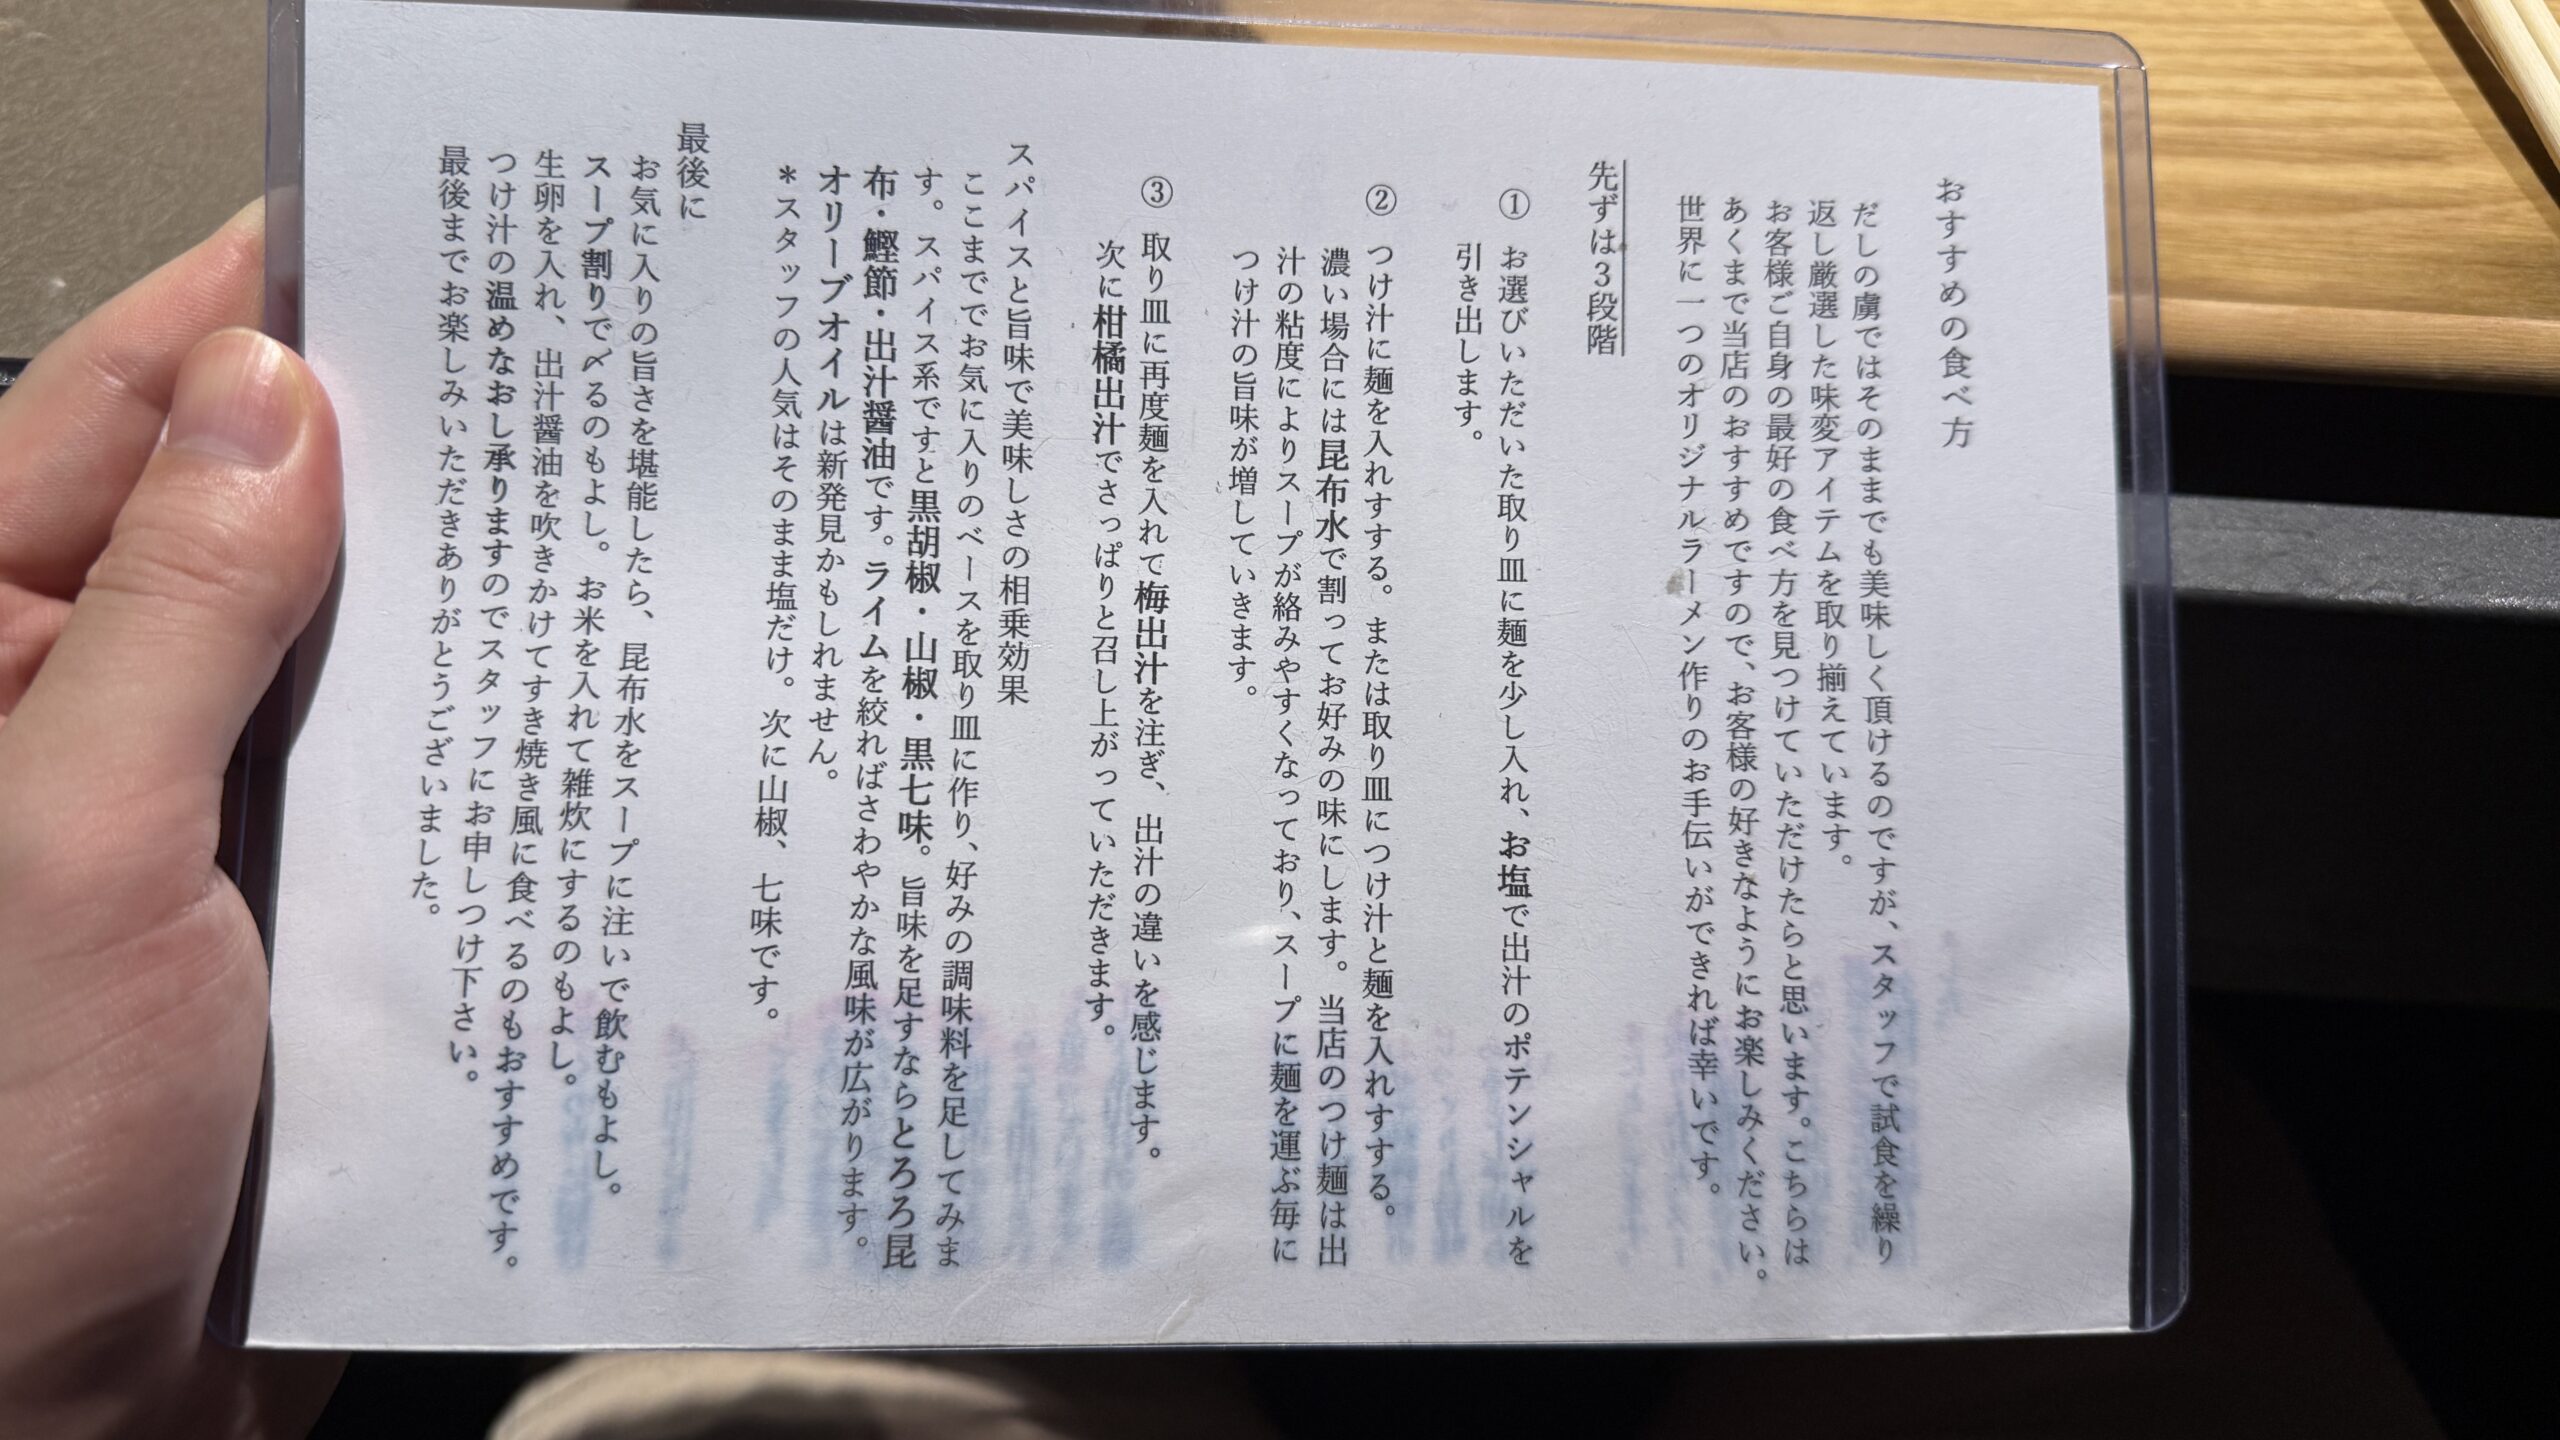 おすすめの食べ方
だしの虜ではそのままでも美味しく頂けるのですが、スタッフで試食を繰り
返し厳選した味変アイテムを取り揃えています。
お客様ご自身の最好の食べ方を見つけていただけたらと思います。こちらは
あくまで当店のおすすめですので、お客様の好きなようにお楽しみください。
世界に一つのオリジナルラーメン作りのお手伝いができれば幸いです。
先ずは３段階
① お選びいただいた取り皿に麺を少し入れ、お塩で出汁のポテンシャルを
引き出します。
② つけ汁に麺を入れすする。または取り皿につけ汁と麺を入れすする。
濃い場合には昆布水で割ってお好みの味にします。当店のつけ麺は出
汁の粘度によりスープが絡みやすくなっており、スープに麺を運ぶ毎に
つけ汁の旨味が増していきます。
③ 取り皿に再度麺を入れて梅出汁を注ぎ、出汁の違いを感じます。
次に柑橘出汁でさっぱりと召し上がっていただきます。
スパイスと旨味で美味しさの相乗効果
ここまででお気に入りのベースを取り皿に作り、好みの調味料を足してみま
す。スパイス系ですと黒胡椒・山椒・黒七味。旨味を足すならとろろ昆
布・鰹節・出汁醤油です。ライムを絞ればさわやかな風味が広がります。
オリーブオイルは新発見かもしれません。
＊スタッフの人気はそのまま塩だけ。次に山椒、七味です。
最後に
お気に入りの旨さを堪能したら、昆布水をスープに注いで飲むもよし。
スープ割りで〆るのもよし。お米を入れて雑炊にするのもよし。
生卵を入れ、出汁醤油を吹きかけてすき焼き風に食べるのもおすすめです。
つけ汁の温めなおし承りますのでスタッフにお申しつけ下さい。
最後までお楽しみいただきありがとうございました。